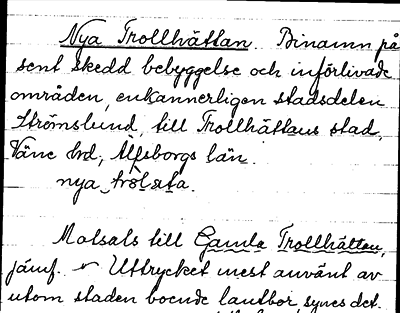 Nya Trollhättan. Binamn på
sent skedd bebyggelse och införlivade
områden, enkannerligen stadsdelen
Strömslund, till Trollhättans stad,
Väne hrd, Älfsborgs län.
nya
Motsats till Gamla Trollhättan,
jämf. Uttrycket mest använt av
utom staden boende lantbor, synes det.